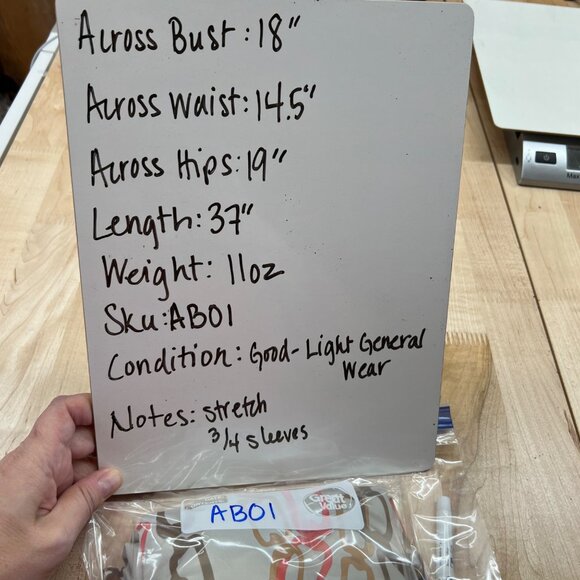 Across Bust: 18"
Across Waist: 14.5"
Across Hips: 19"
Length: 37"
Weight: 11oz
Sku: AB01
Condition: Good- Light General
Wear
Notes: Stretch
3/4 sleeves
Great
Value
AB01
Max